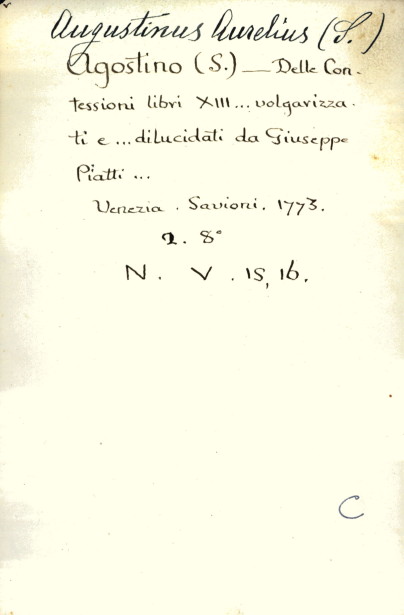 Augustinus Aurelius (S.)
Agostino (S.) — Delle Con-
fessioni libri XIII... volgarizza-
ti e ... dilucidati da Giuseppe
Piatti ...
Venezia. Savioni. 1773.
2. 8°
N. V. 15, 16.
C